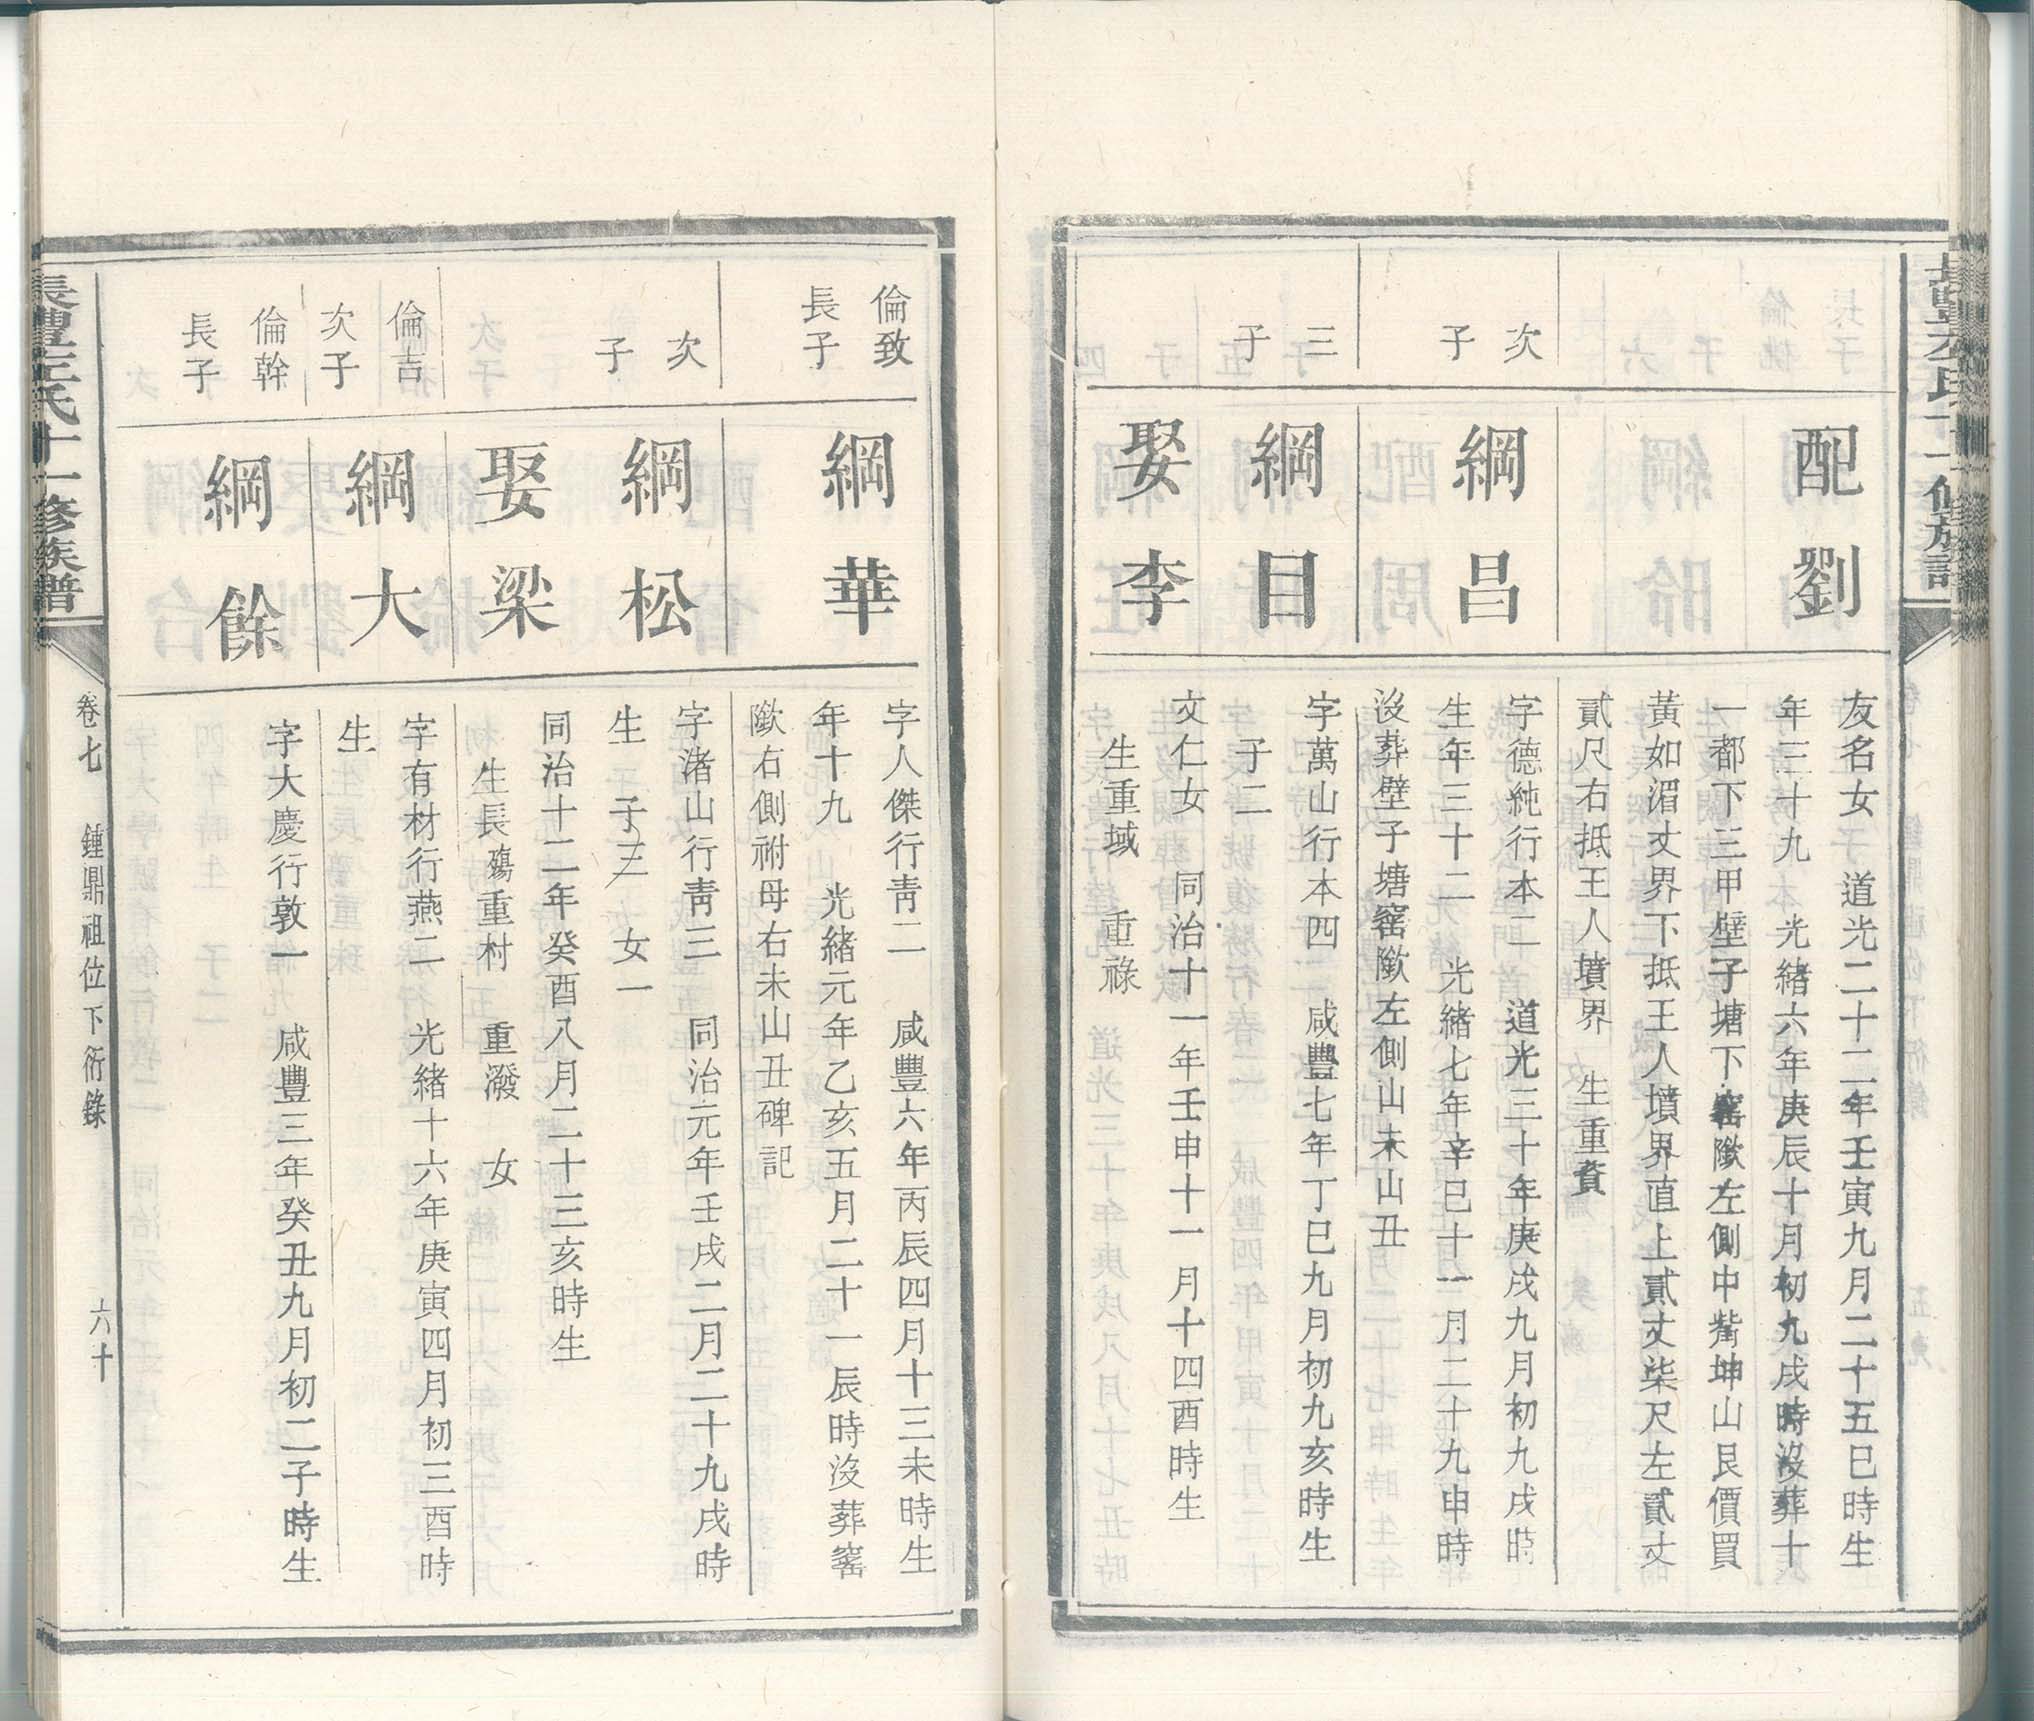 配劉
友名女　道光二十二年壬寅九月二十五巳時生
年三十九　光緒六年庚辰十月初九戌時沒葬十
一都下三甲壁子塘下窰歘左側中嘴坤山艮價買
黃如湄丈界下抵王人墳界直上貳丈柒尺左貳丈
貳尺右抵王人墳界　生重賁
次子
綱昌
字德純行本二　道光三十年庚戌九月初九戌時
生年三十二　光緒七年辛巳十一月二十九申時
沒葬壁子塘窰歘左側山未山丑
三子
綱目
字萬山行本四　咸豐七年丁巳九月初九亥時生
子二
娶李
文仁女　同治十一年壬申十一月十四酉時生
生重域　重祿
倫致
長子
綱華
字人傑行靑二　咸豐六年丙辰四月十三未時生
年十九　光緒元年乙亥五月二十一辰時沒葬窰
歘右側祔母右未山丑碑記
次子
綱松
字渚山行靑三　同治元年壬戌二月二十九戌時
生　子三　女一
娶梁
同治十二年癸酉八月二十三亥時生
生長殤重村　重潑　女
倫吉
次子
綱大
字有材行燕二　光緒十六年庚寅四月初三酉時
生
倫幹
長子
綱餘
字大慶行敦一　咸豐三年癸丑九月初二子時生
長豐左氏十一修族譜
卷七　鍾鼎祖位下衍錄　六十